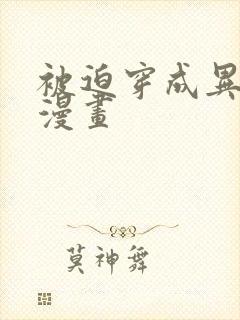 被迫穿成異
漫畫
莫神舞